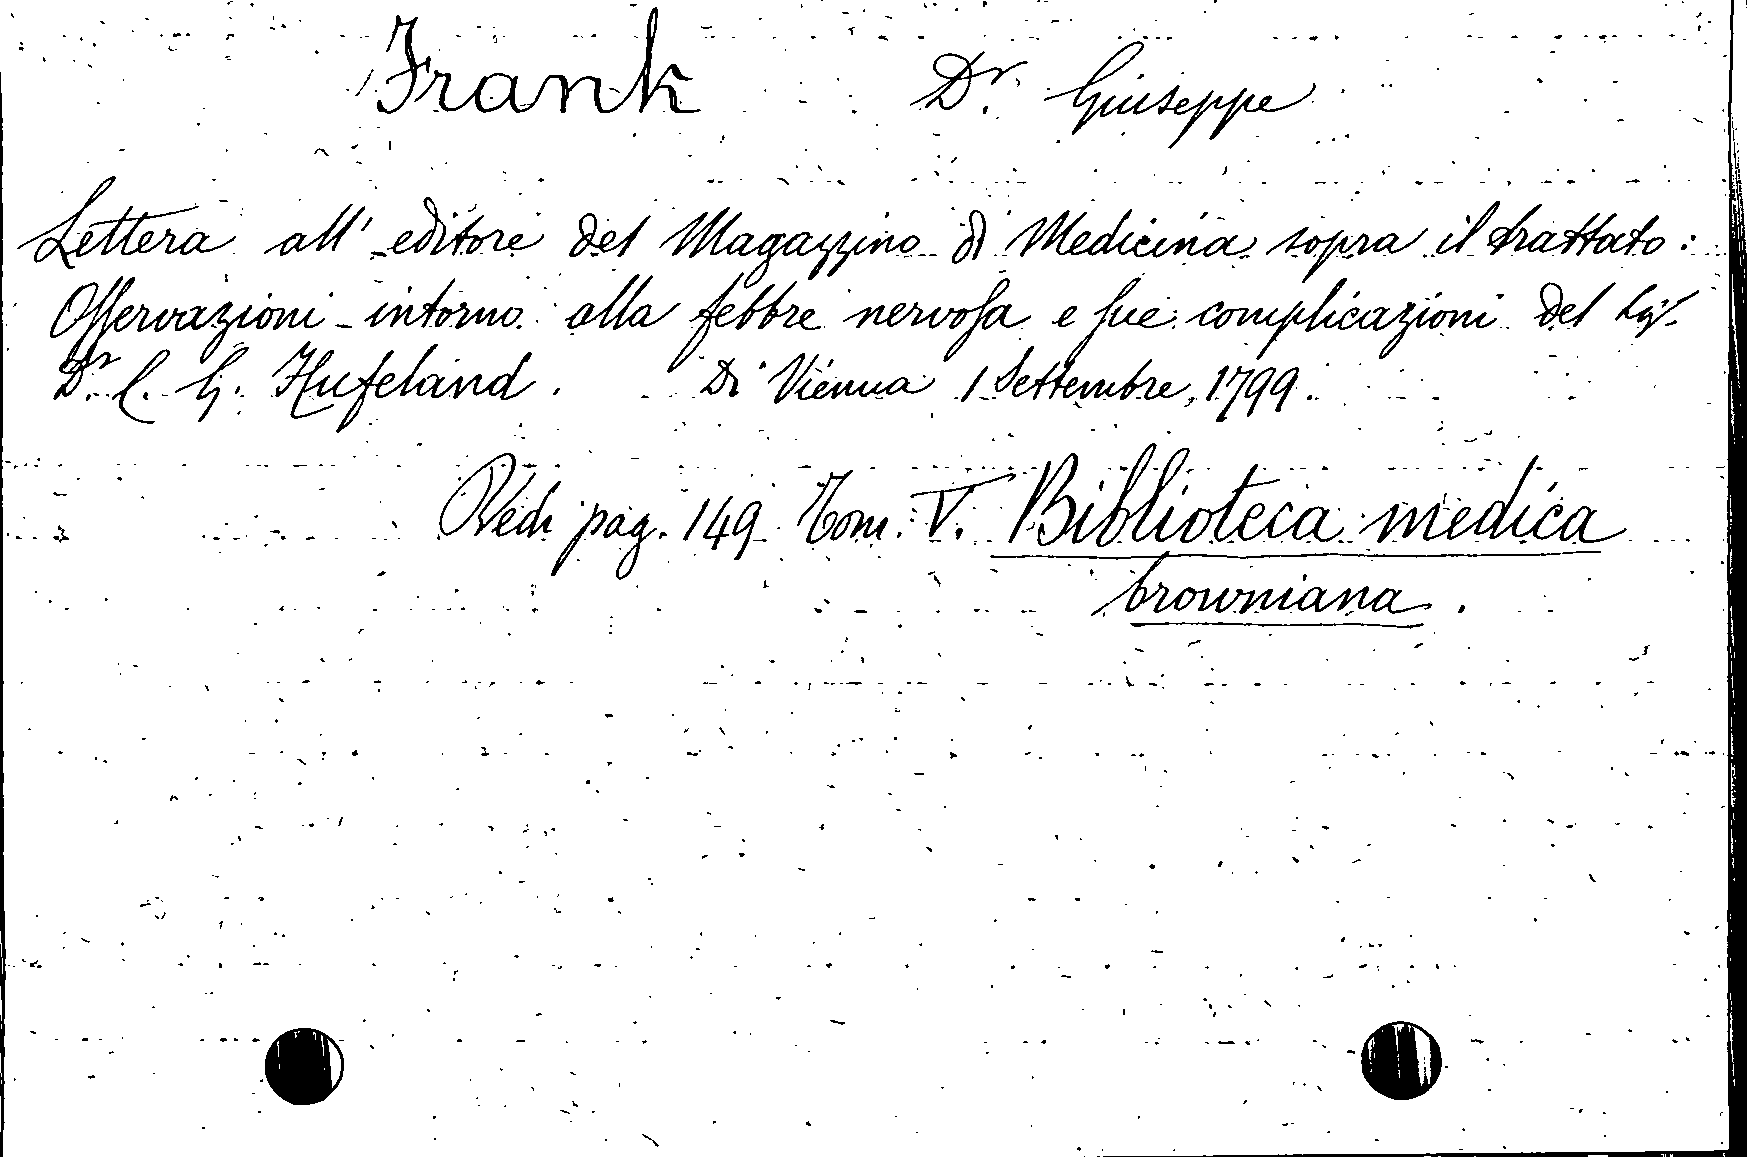 Frank Dr. Giuseppe
Lettera all' editore del Magazzino di Medicina sopra il trattato:
Osservazioni intorno alla febbre nervosa e sue complicazioni del Sig.
Dr. C. G. Hufeland. Di Vienna 1 Settembre, 1799.
Vedi pag. 149 Tom. V. Biblioteca medica
browniana.